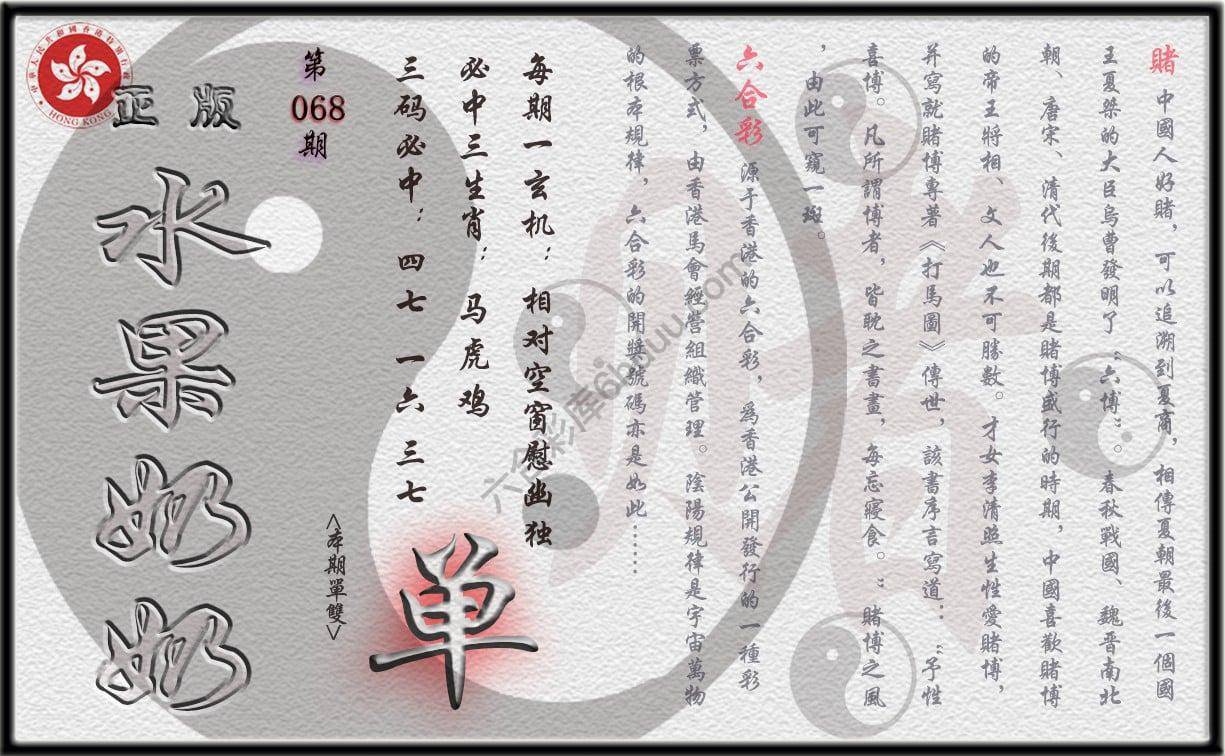 賭 中國人好賭，可以追溯到夏商，相傳夏朝最後一個國
王夏桀的大臣烏曹發明了“六博”。春秋戰國、魏晉南北
朝、唐宋、清代後期都是賭博盛行的時期，中國喜歡賭博
的帝王將相、文人也不可勝數。才女李清照生性愛賭博，
并寫就賭博專著《打馬圖》傳世，該書序言寫道：“予性
喜博。凡所謂博者，皆耽之書畫，每忘寢食。”賭博之風
，由此可窺一斑。
六合彩 源于香港的六合彩，為香港公開發行的一種彩
票方式，由香港馬會經營組織管理。陰陽規律是宇宙萬物
的根本規律，六合彩的開獎號碼亦是如此……
每期一玄机：相对空窗慰幽独
必中三生肖：马虎鸡
三码必中：四七 一六 三七
单
第068期
<本期單雙>
正版
水果奶奶
HONG KONG
六合彩库6h6uu.com